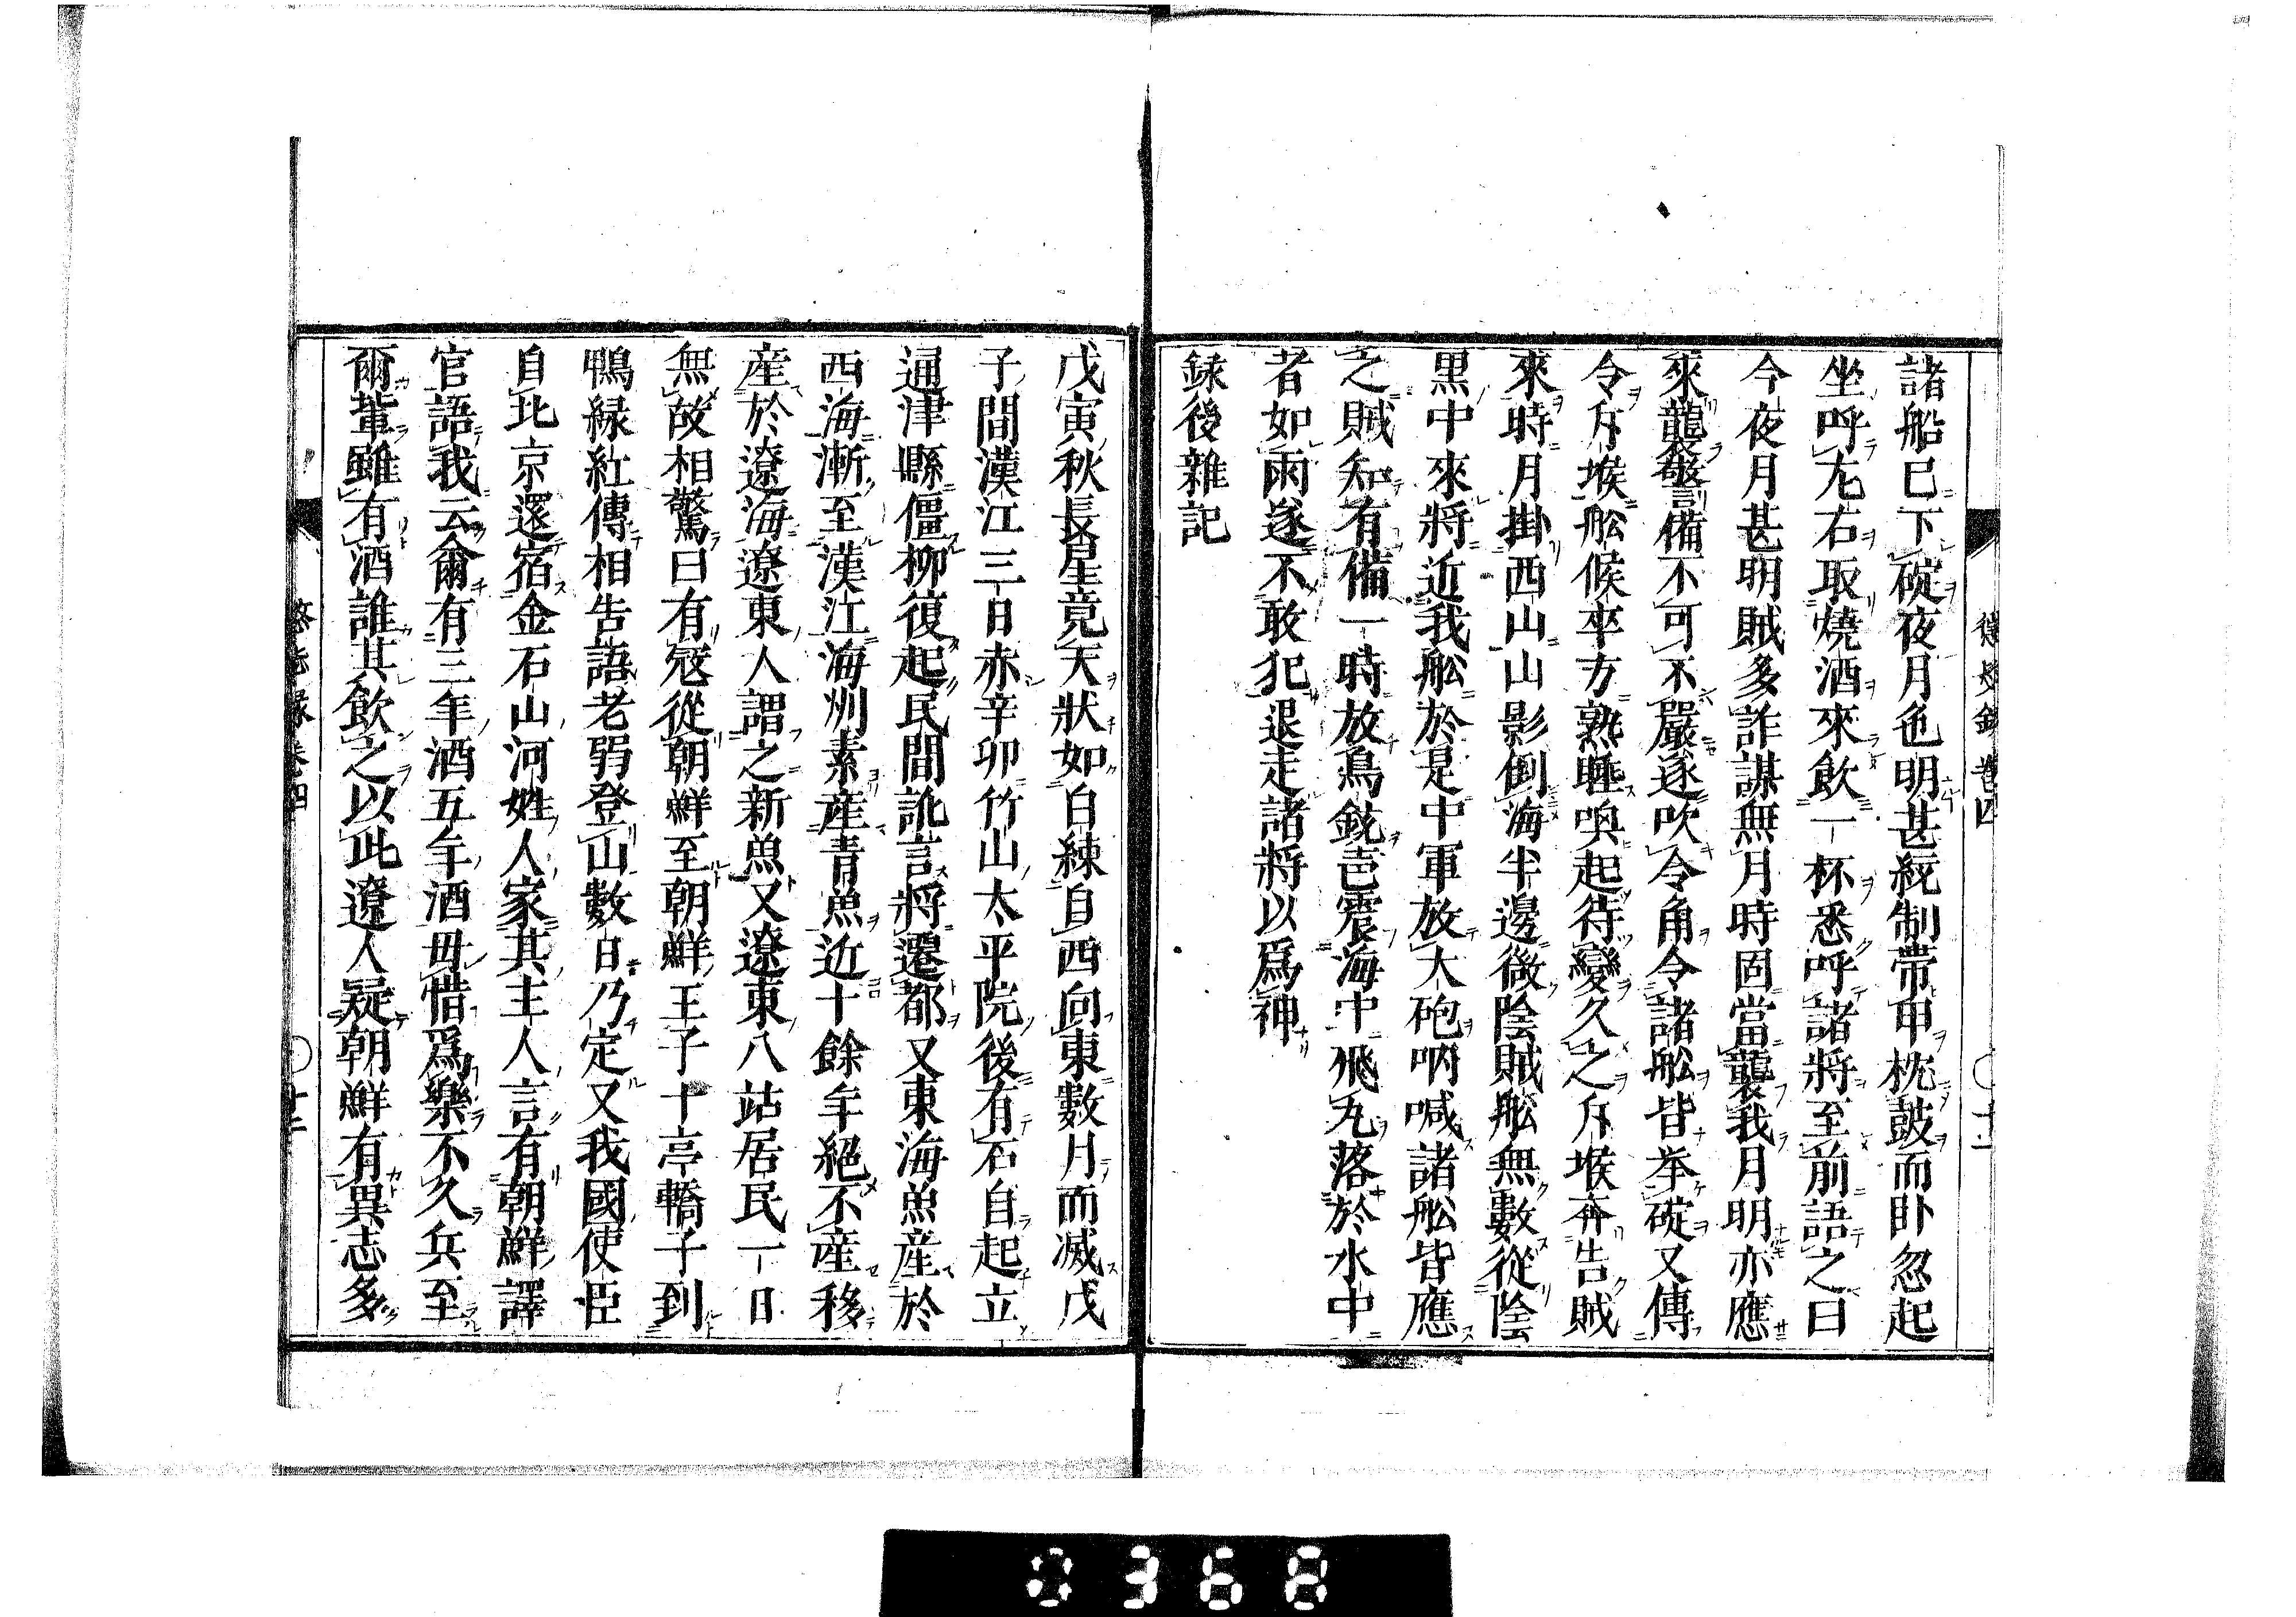 諸船已下碇夜月色明甚統制帶甲枕鼓而卧忽起
坐呼左右取燒酒來飲一杯悉呼諸將至前語之曰
今夜月甚明賊多詐謀無月時固當襲我月明亦應
來襲警備不可不嚴遂吹令角令諸舩皆举碇又傳
令斥堠舩候卒方熟睡喚起待變久之斥堠奔告賊
來時月掛西山山影倒海半邊微陰賊舩無數從陰
黒中來將近我舩於是中軍放大砲吶喊諸舩皆應
之賊知有備一時放鳥銃㐰震海中飛丸落於水中
者如雨遂不敢犯退走諸將以爲神
録後雜記
戊寅秋長星竟天狀如白練自西向東數月而滅戊
子間漢江三日赤辛卯竹山太平院後有石自起立
通津縣僵柳復起民間訛言將遷都又東海魚産於
西海漸至漢江海洲素産青魚近十餘年絕不産移
産於遼海遼東人謂之新魚又遼東八站居民一日
無故相驚曰有冦從朝鮮至朝鮮王子十亭轎子到
鴨緑紅傳相告語老弱登山數日乃定又我國使臣
自北京還宿金石山河姓人家其主人言有朝鮮譯
官語我云爾有三年酒五年酒毋惜爲樂不久兵至
爾輩雖有酒誰其飲之以此遼人疑朝鮮有異志多
0368